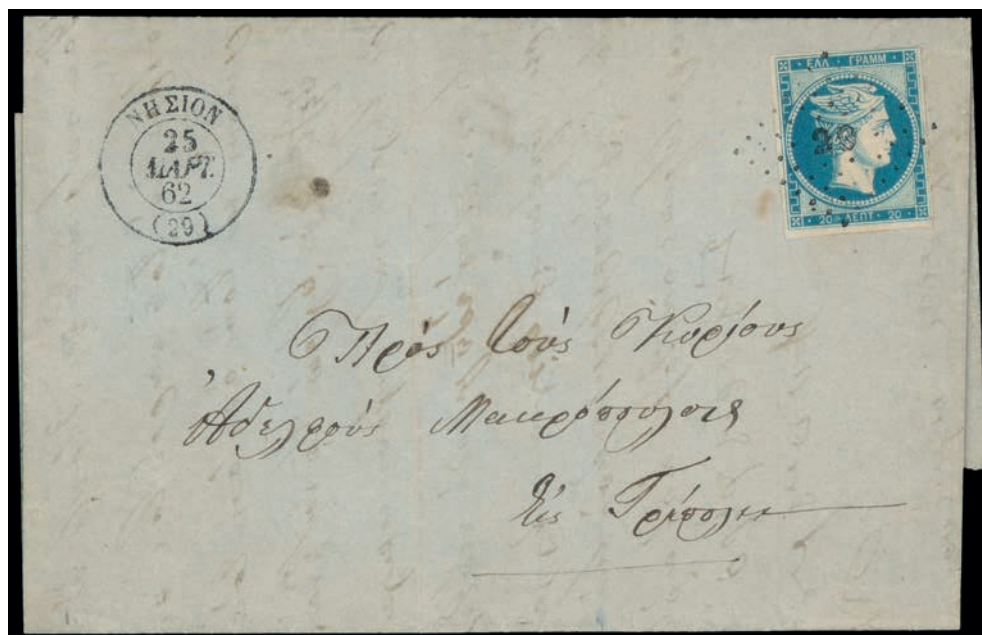 ΝΗΣΙΟΝ
25
ΜΑΡΤ.
62
(29)
ΕΛΛ · ΓΡΑΜΜ ·
20 ΛΕΠΤ · 20
Πρὸς τοὺς Κυρίους
Ἀδελφοὺς Μακρόπουλους
Εἰς Τρίπολιν